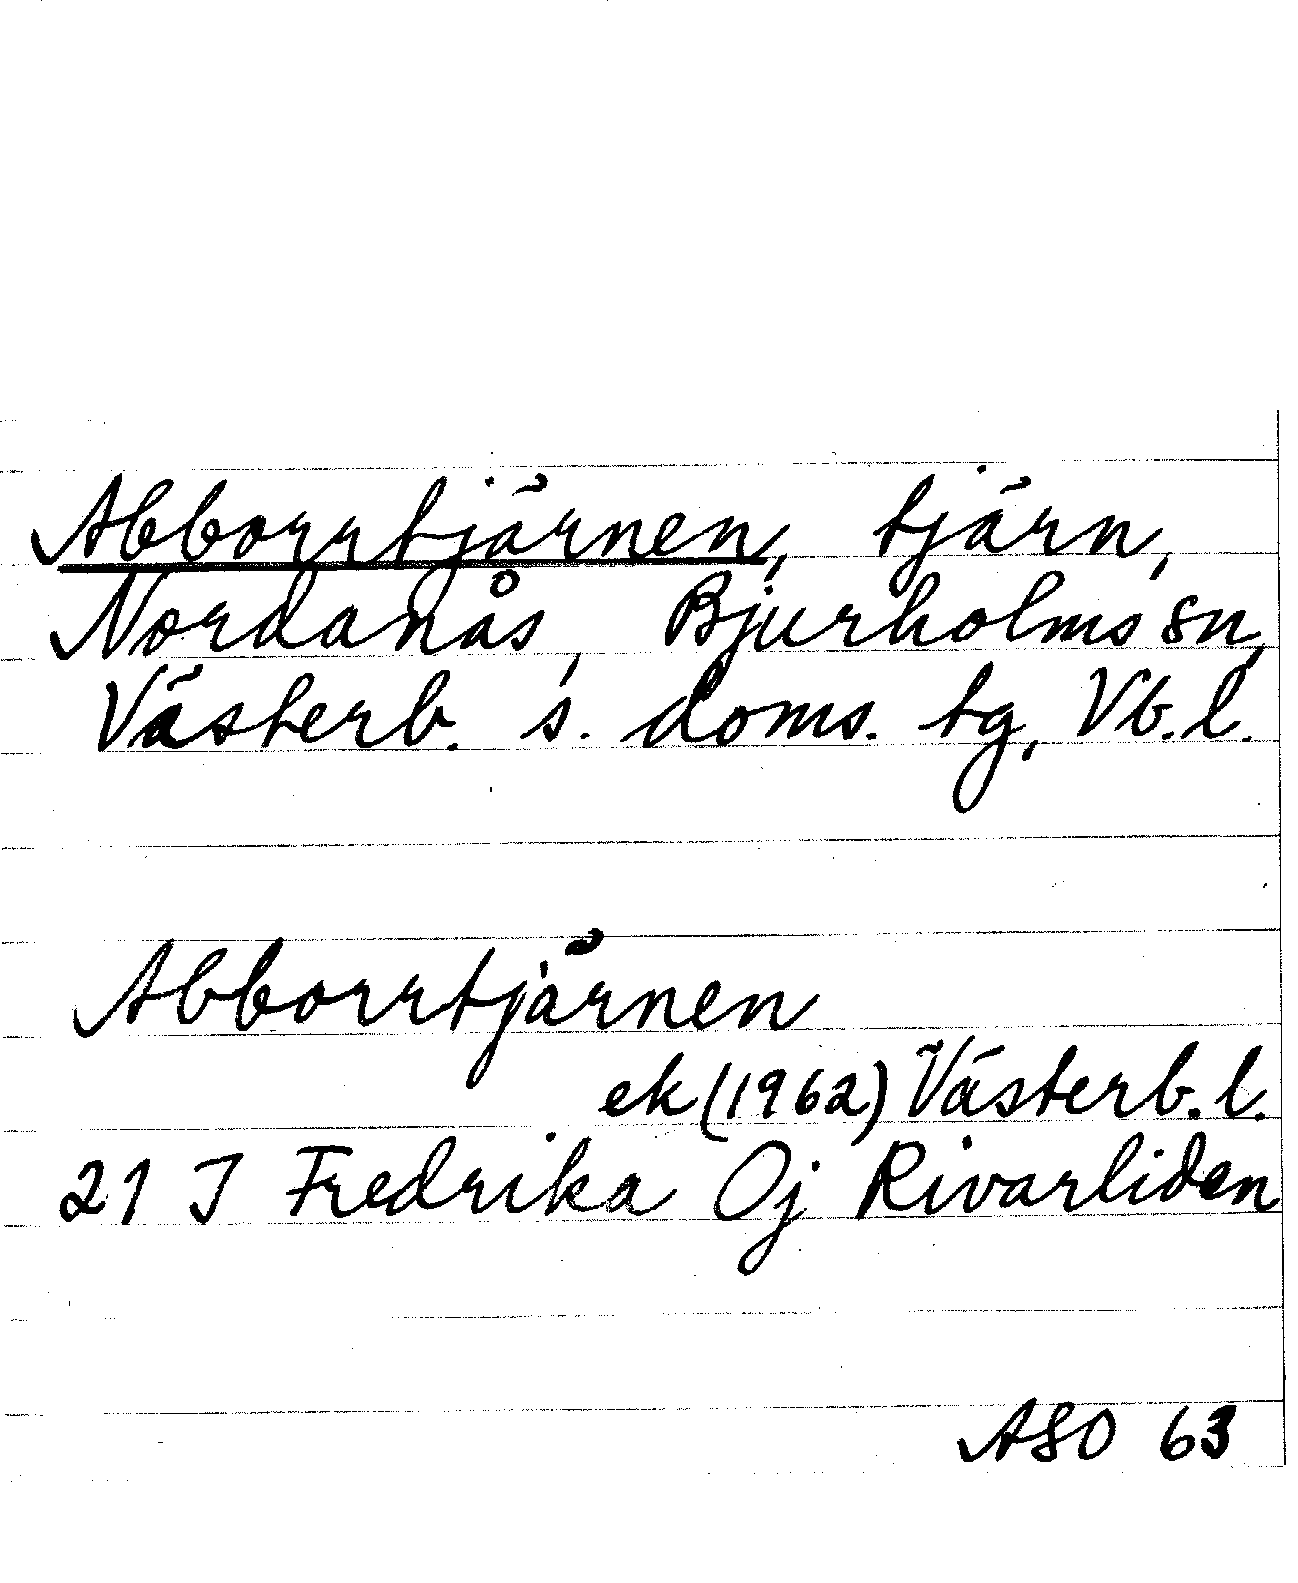 Abborrtjärnen, tjärn,
Nordanås, Bjurholms sn,
Västerb. s. doms. tg, Vb. l.
Abborrtjärnen
ek (1962) Västerb. l.
21 J Fredrika Oj Rivarliden
ASO 63